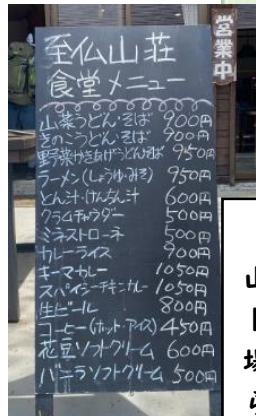 至仏山荘
食堂メニュー
山菜うどん・そば 900円
きのこうどん・そば 900円
野菜かきあげうどんそば 950円
ラーメン(しょうゆ・みそ) 950円
とん汁・けんちん汁 600円
クラムチャウダー 500円
ミネストローネ 500円
カレーライス 900円
キーマカレー 1050円
スパイシーチキンカレー 1050円
生ビール 800円
コーヒー(ホット・アイス) 450円
花豆ソフトクリーム 600円
バニラソフトクリーム 500円
営業中
山
場